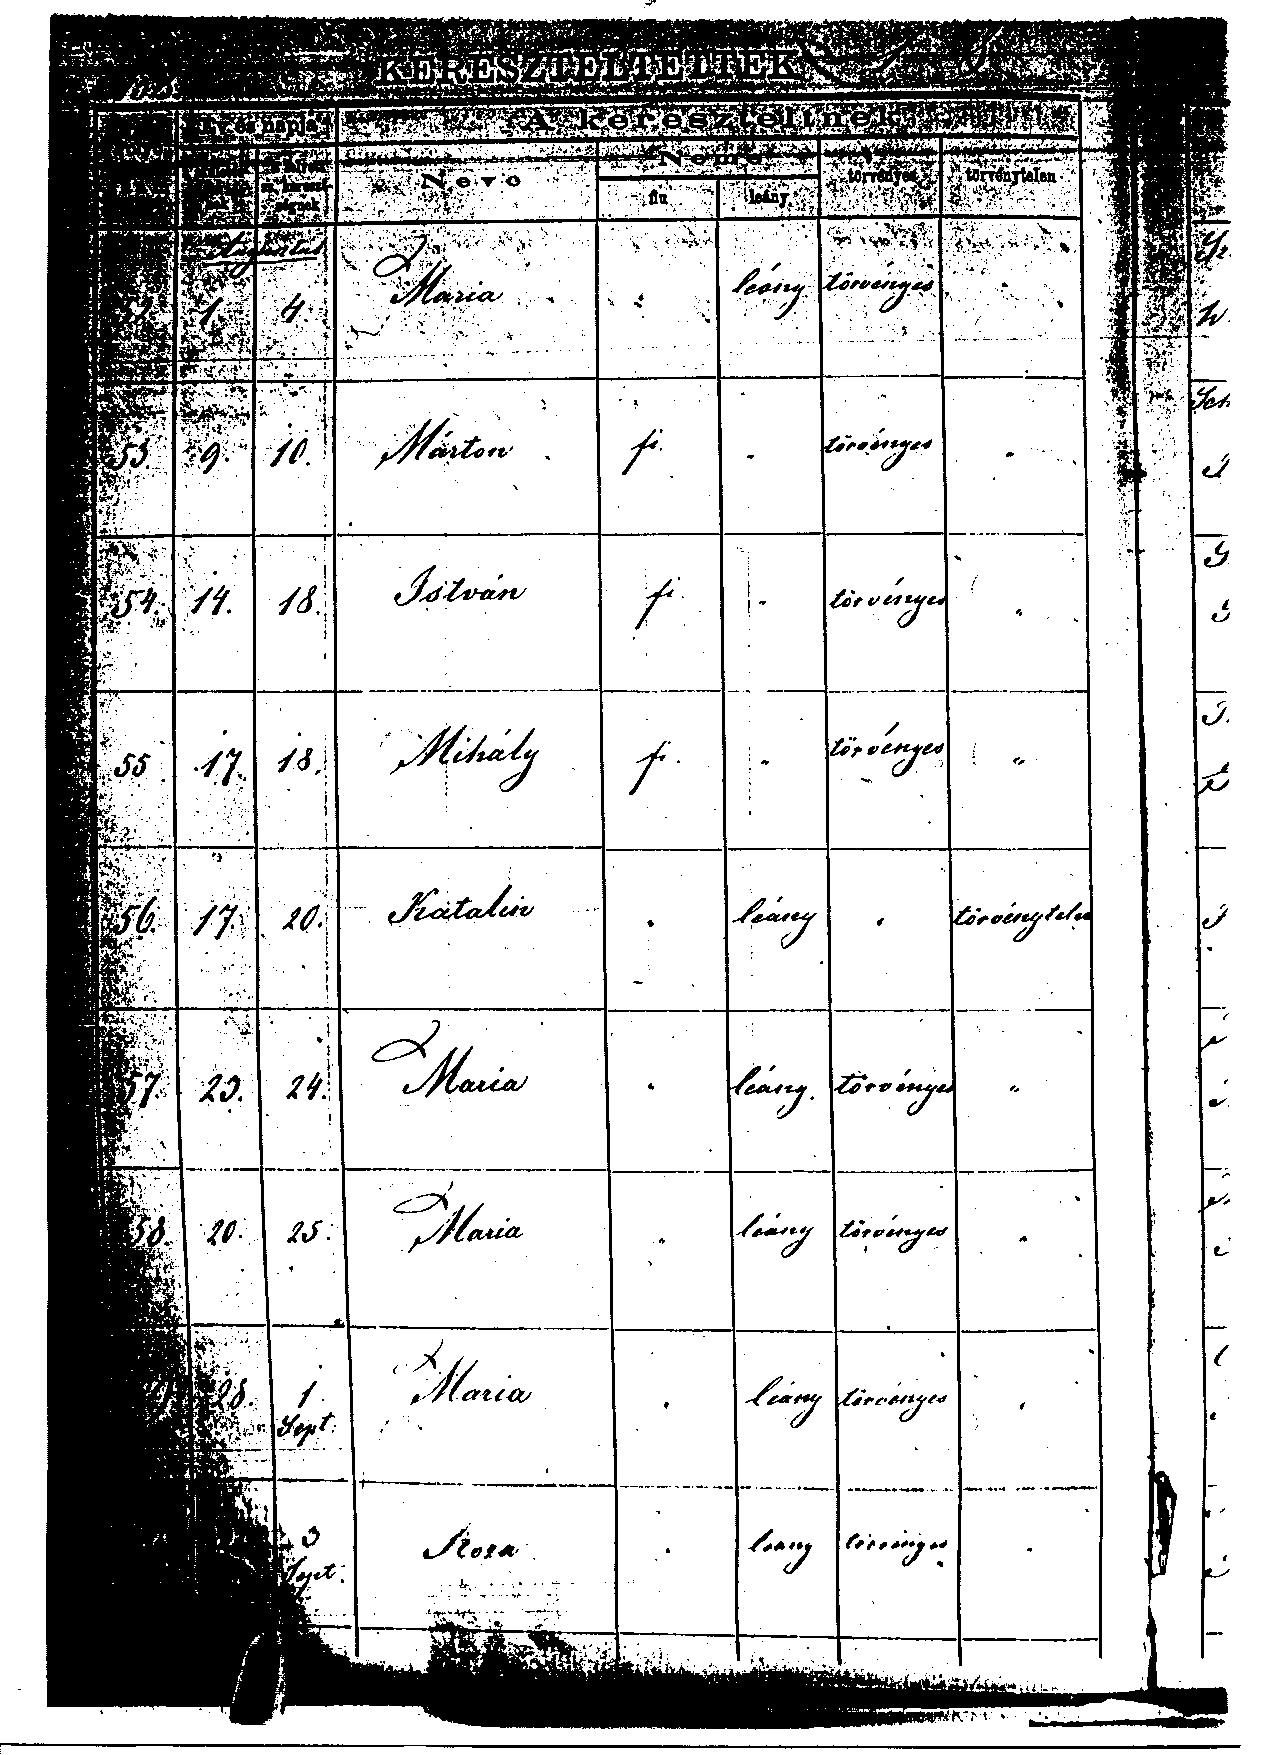 KERESZTELTETTEK
A kereszteltnek
év és napja
Neve
Neme
fiu leány törvényes törvénytelen
Augustus
1. 4. Maria leány törvényes
53 9. 10. Márton fi. törvényes
54. 14. 18. István fi. törvényes
55 17. 18. Mihály fi. törvényes
56. 17. 20. Katalin leány törvénytelen
57. 23. 24. Maria leány. törvényes
58. 20. 25. Maria leány törvényes
28. 1 Maria leány törvényes
Sept.
3 Roza leány törvényes
Sept.